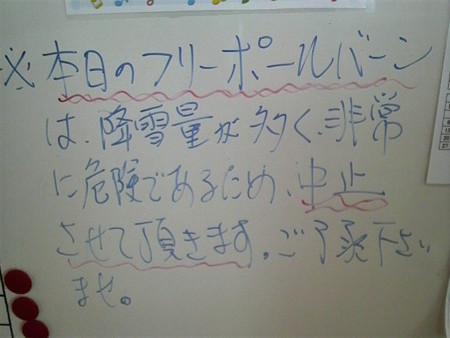 ※本日のフリーポールバーン
は、降雪量が多く、非常
に危険であるため、中止
させて頂きます。ご了承下さい
ませ。